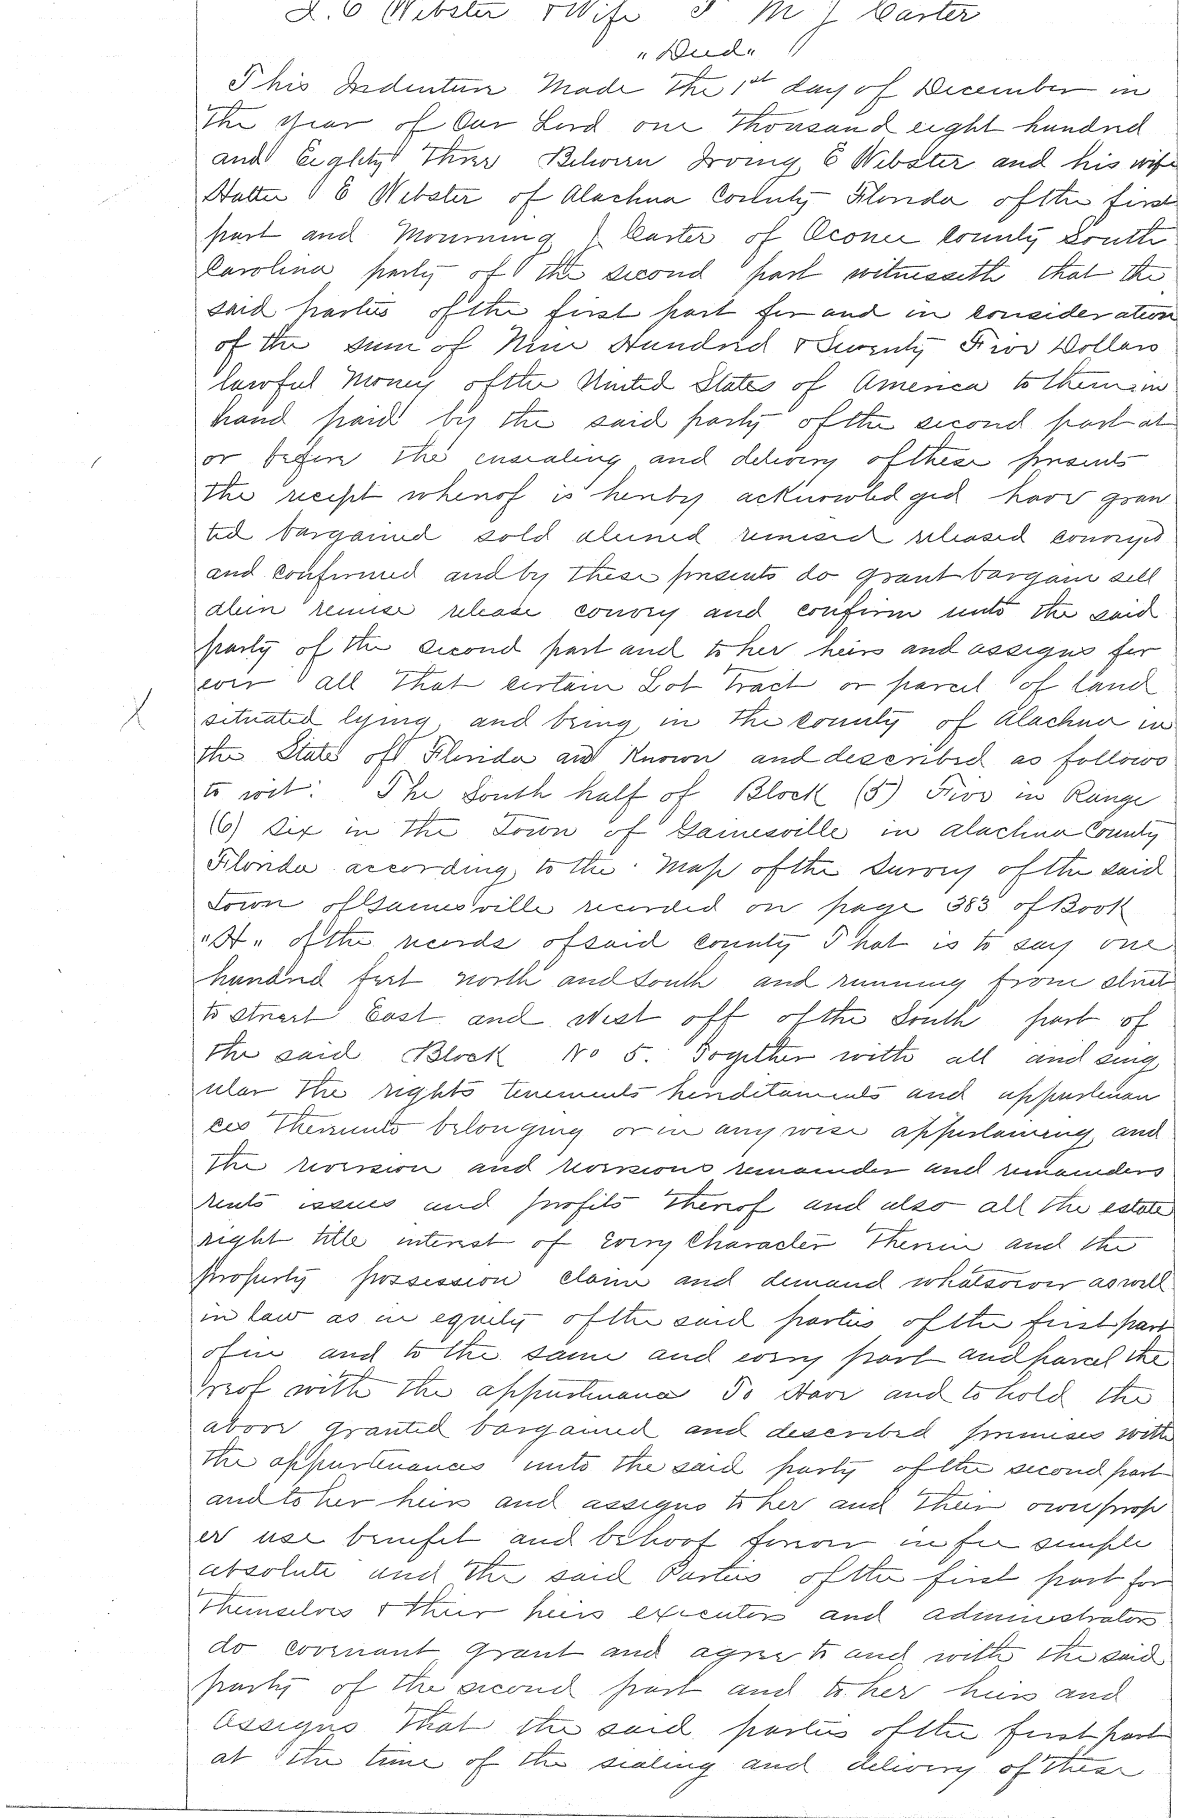 I. E Webster & Wife T M J Carter
"Deed"
This Indenture Made The 1st day of December in
The year of Our Lord one thousand eight hundred
and Eighty Three Between Irving E Webster and his wife
Hattie E Webster of Alachua County Florida of the first
part and Mourning J Carter of Oconee County South
Carolina party of the second part witnesseth that the
said parties of the first part for and in consideration
of the sum of Nine Hundred & Seventy Five Dollars
lawful Money of the United States of America to them in
hand paid by the said party of the second part at
or before the ensealing and delivery of these presents
the receipt whereof is hereby acknowledged have gran
ted bargained sold aliened remised released conveyed
and confirmed and by these presents do grant bargain sell
alien remise release convey and confirm unto the said
party of the second part and to her heirs and assigns for
ever all that certain Lot Tract or parcel of land
situated lying and being in the county of Alachua in
the State of Florida and Known and described as follows
to wit: The South half of Block (5) Five in Range
(6) Six in the Town of Gainesville in Alachua County
Florida according to the Map of the Survey of the said
Town of Gainesville recorded on page 383 of Book
"A" of the records of said county That is to say one
hundred feet north and south and running from street
to street East and West off of the South part of
the said Block No 5. Together with all and sing
ular the rights tenements hereditaments and appurtenan
ces thereunto belonging or in any wise appertaining and
the reversion and reversions remainder and remainders
rents issues and profits thereof and also all the estate
right title interest of Every Character Therein and the
property possession claim and demand whatsoever as well
in law as in equity of the said parties of the first part
of in and to the same and every part and parcel the
reof with the appurtenance To Have and to hold the
above granted bargained and described premises with
the appurtenances unto the said party of the second part
and to her heirs and assigns to her and their own prop
er use benefit and behoof forever in fee simple
absolute and the said Parties of the first part for
Themselves & their heirs executors and administrators
do covenant grant and agree to and with the said
party of the second part and to her heirs and
Assigns That the said parties of the first part
at the time of the sealing and delivery of these